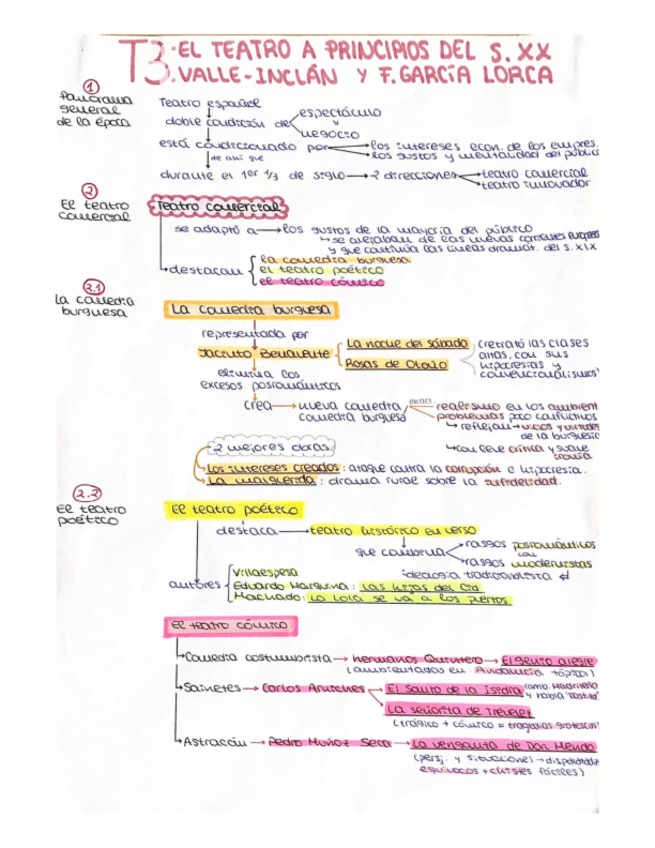 T3. EL TEATRO A PRINCIPIOS DEL S. XX
VALLE-INCLÁN Y F. GARCÍA LORCA
1
Panorama
general
de la época
Teatro español
doble condición de espectáculo
y
negocio
está condicionado por los intereses econ. de los empres.
los gustos y mentalidad del públic
de ahí que
durante el 1er 1/3 de siglo 2 direcciones teatro comercial
teatro innovador
2
El teatro
comercial
Teatro comercial
se adaptó a los gustos de la mayoría del público
se alejaban de las nuevas corrientes europeas
y que continúa las líneas dramát. del S. XIX
destacan la comedia burguesa
el teatro poético
el teatro cómico
2.1
La comedia
burguesa
La comedia burguesa
representada por
Jacinto Benavente
La noche del sábado
Rosas de Otoño
(retrató las clases
altas, con sus
hipocresías y
convencionalismos)
elimina los
excesos posrománticos
crea nueva comedia
comedia burguesa
caract.
realismo en los ambient
problemas poco conflictivos
reflejan vicios y virtudes
de la burguesía
con leve crítica y suave
ironía
2 mejores obras
Los intereses creados: ataque contra la corrupción e hipocresía.
La malquerida: drama rural sobre la infidelidad.
2.2
El teatro
poético
El teatro poético
destaca teatro histórico en verso
que combina rasgos posrománticos
con
rasgos modernistas
ideología tradicionalista
autores
Villaespesa
Eduardo Marquina: Las hijas del Cid
Machado: La Lola se va a los puertos
El teatro cómico
Comedia costumbrista hermanos Quintero El genio alegre
(ambientados en Andalucía tópica)
Sainetes Carlos Arniches El Santo de la Isidra (amb. Madrileño
y habla
La señorita de Trevélez
(trágico + cómico = tragedias grotescas)
Astracán Pedro Muñoz Seca La venganza de Don Mendo
(persj. y situaciones) disparatada
equívocos + chistes fáciles)